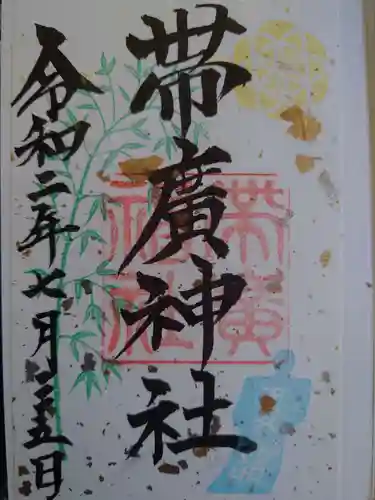 帯廣神社
令和二年七月 五日
帯廣
神社